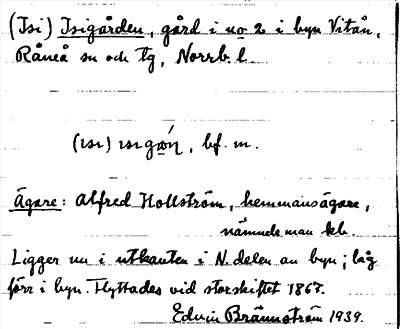 (Isi) Isigården, gård i no 2 i byn Vitån,
Råneå sn och tg, Norrb. l.
(ısı) , bf. m.
Ägare: Alfred Hollström, hemmansägare,
nämndeman h.
Ligger nu i utkanten i N. delen av byn; låg
förr i byn. Flyttades vid storskiftet 1867.
Edvin Brännström 1939.